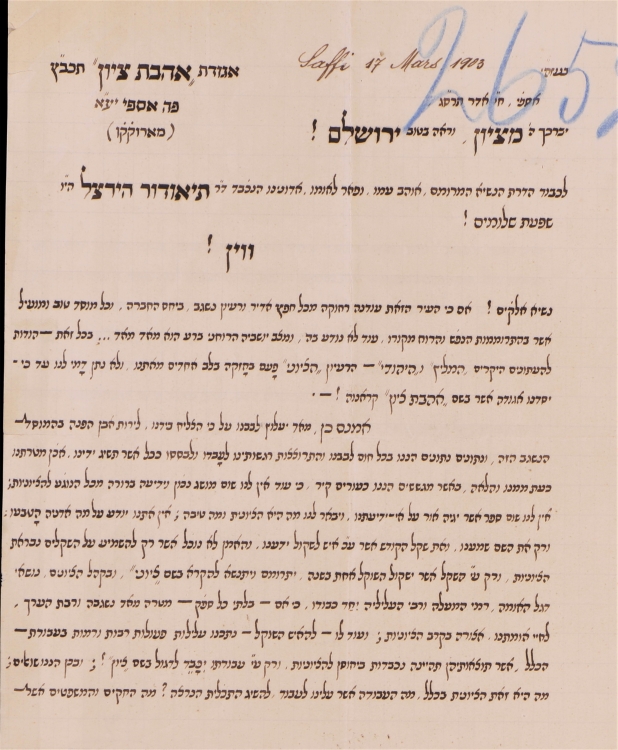 בעזה״י
Saffi 17 Mars 1903
2657
אגודת „אהבת ציון” תכב״ץ
אספי, ח״י אדר תרס״ג
פה אספי יע״א
יברכך ה׳ מציון, וראה בטוב ירושלם!
(מארוקקו)
לכבוד הדרת הנשיא המרומם, אוהב עמו, ופאר לאומו, אדוננו הנכבד ד״ר תיאודור הירצל הי״ו
שפעת שלומים!
ווין!
נשיא אלקים! אם כי העיר הזאת עודנה רחוקה מכל חפץ אדיר ורעיון נשגב, ביחס החברה, וכל מוסד טוב ומועיל
אשר בהתרוממות הנפש והרוח מקורו, עוד לא נודע בה, ומצב יושביה הרוחני ברע הוא מאד מאד... בכל זאת — הודות
להעתונים היקרים „המליץ” ו„היהודי” — הרעיון „הציוני” פעם בחזקה בלב אחדים מאתנו, ולא נתן דמי לנו עד כי -
יסדנו אגודה אשר בשם „אהבת ציון” קראנוה! — .
אמנם כן, מאד יעלוץ לבבנו על כי הצליח בידנו, לירות אבן הפנה בהמוסד —
הנשגב הזה, ונתונים נתונים הננו בכל חום לבבנו והתרוצצות רגשותינו לעבדו ולבססו בכל אשר תשיג ידינו, אכן מטרתנו
כעת ממנו והלאה, באשר מגששים הננו כעורים קיר, כי עוד אין לנו שום מושג נכון וידיעה ברורה מכל הנוגע להציוניות;
אין לנו שום ספר אשר יגיה אור על אי־ידיעתנו, ויבאר לנו מה היא הציונית ומה טיבה; אין אתנו יודע על מה אדניה הטבעו:
ורק את השם שמענו, ואת שקל הקודש אשר על איש לשקול ידענו, והאמן לא נוכל אשר רק להשמיע על השקלים נבראת
הציוניות, ורק ע״י השקל אשר ישקול השוקל אחת בשנה, יתרומם ויתנשא להקרא בשם „ציוני”, ובקהל הציונים, נושאי
דגל האומה, רמי המעלה ורבי העליליה יחד כבודו, כי אם — בלתי כל ספק — מטרה מאד נשגבה ורבת הערך,
לחיי אומתנו, אצורה בקרב הציוניות; ועוד לו — להאיש השוקל — נתכנו עלילות פעולות רבות ורמות בעבודת —
הכלל, אשר תוצאותיהן תהיינה נכבדות ביחוסן להציוניות, ורק ע״י עבודתו יכבד לדגול בשם „ציון”!; ובכן הננו שואלים;
מה היא זאת הציונית בכלל, מה העבודה אשר עלינו לעבוד, להשיג התכלית הנרצה? מה החקים והמשפטים אשר —